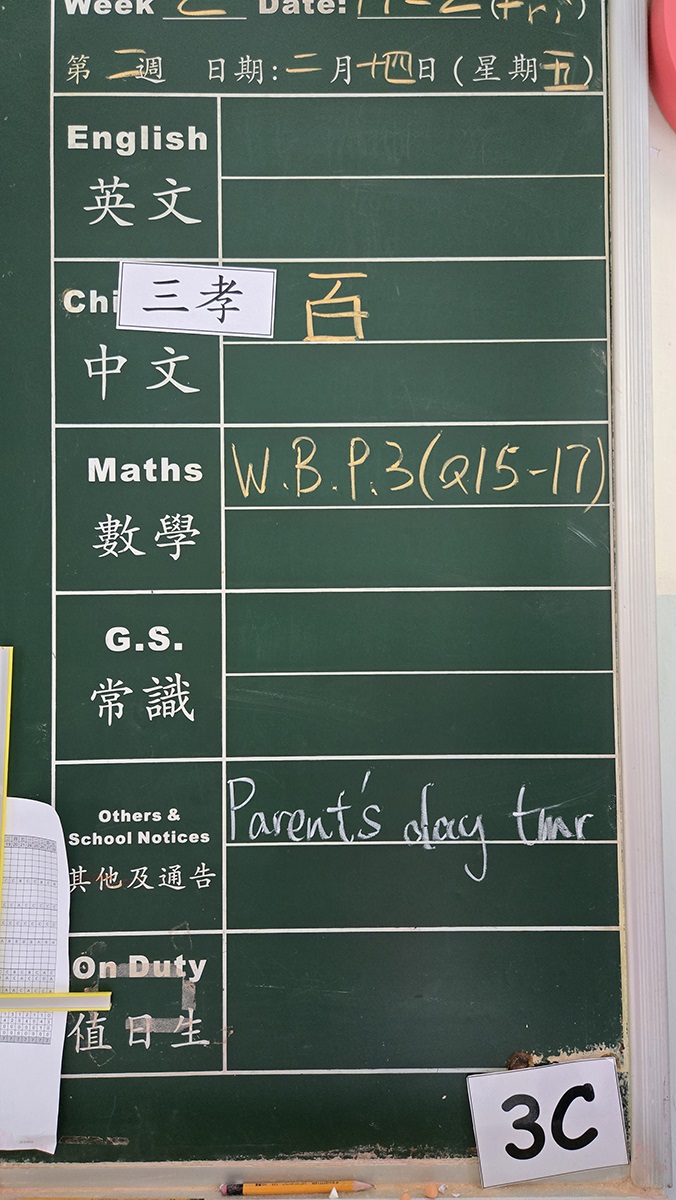 Week 2 Date: 14-2 (Fri)
第二週 日期:二月十四日(星期五)
English
英文
Chi
三孝
百
中文
Maths
W.B.P.3(Q15-17)
數學
G.S.
常識
Others &
School Notices
其他及通告
Parent's day tmr
On Duty
值日生
3C